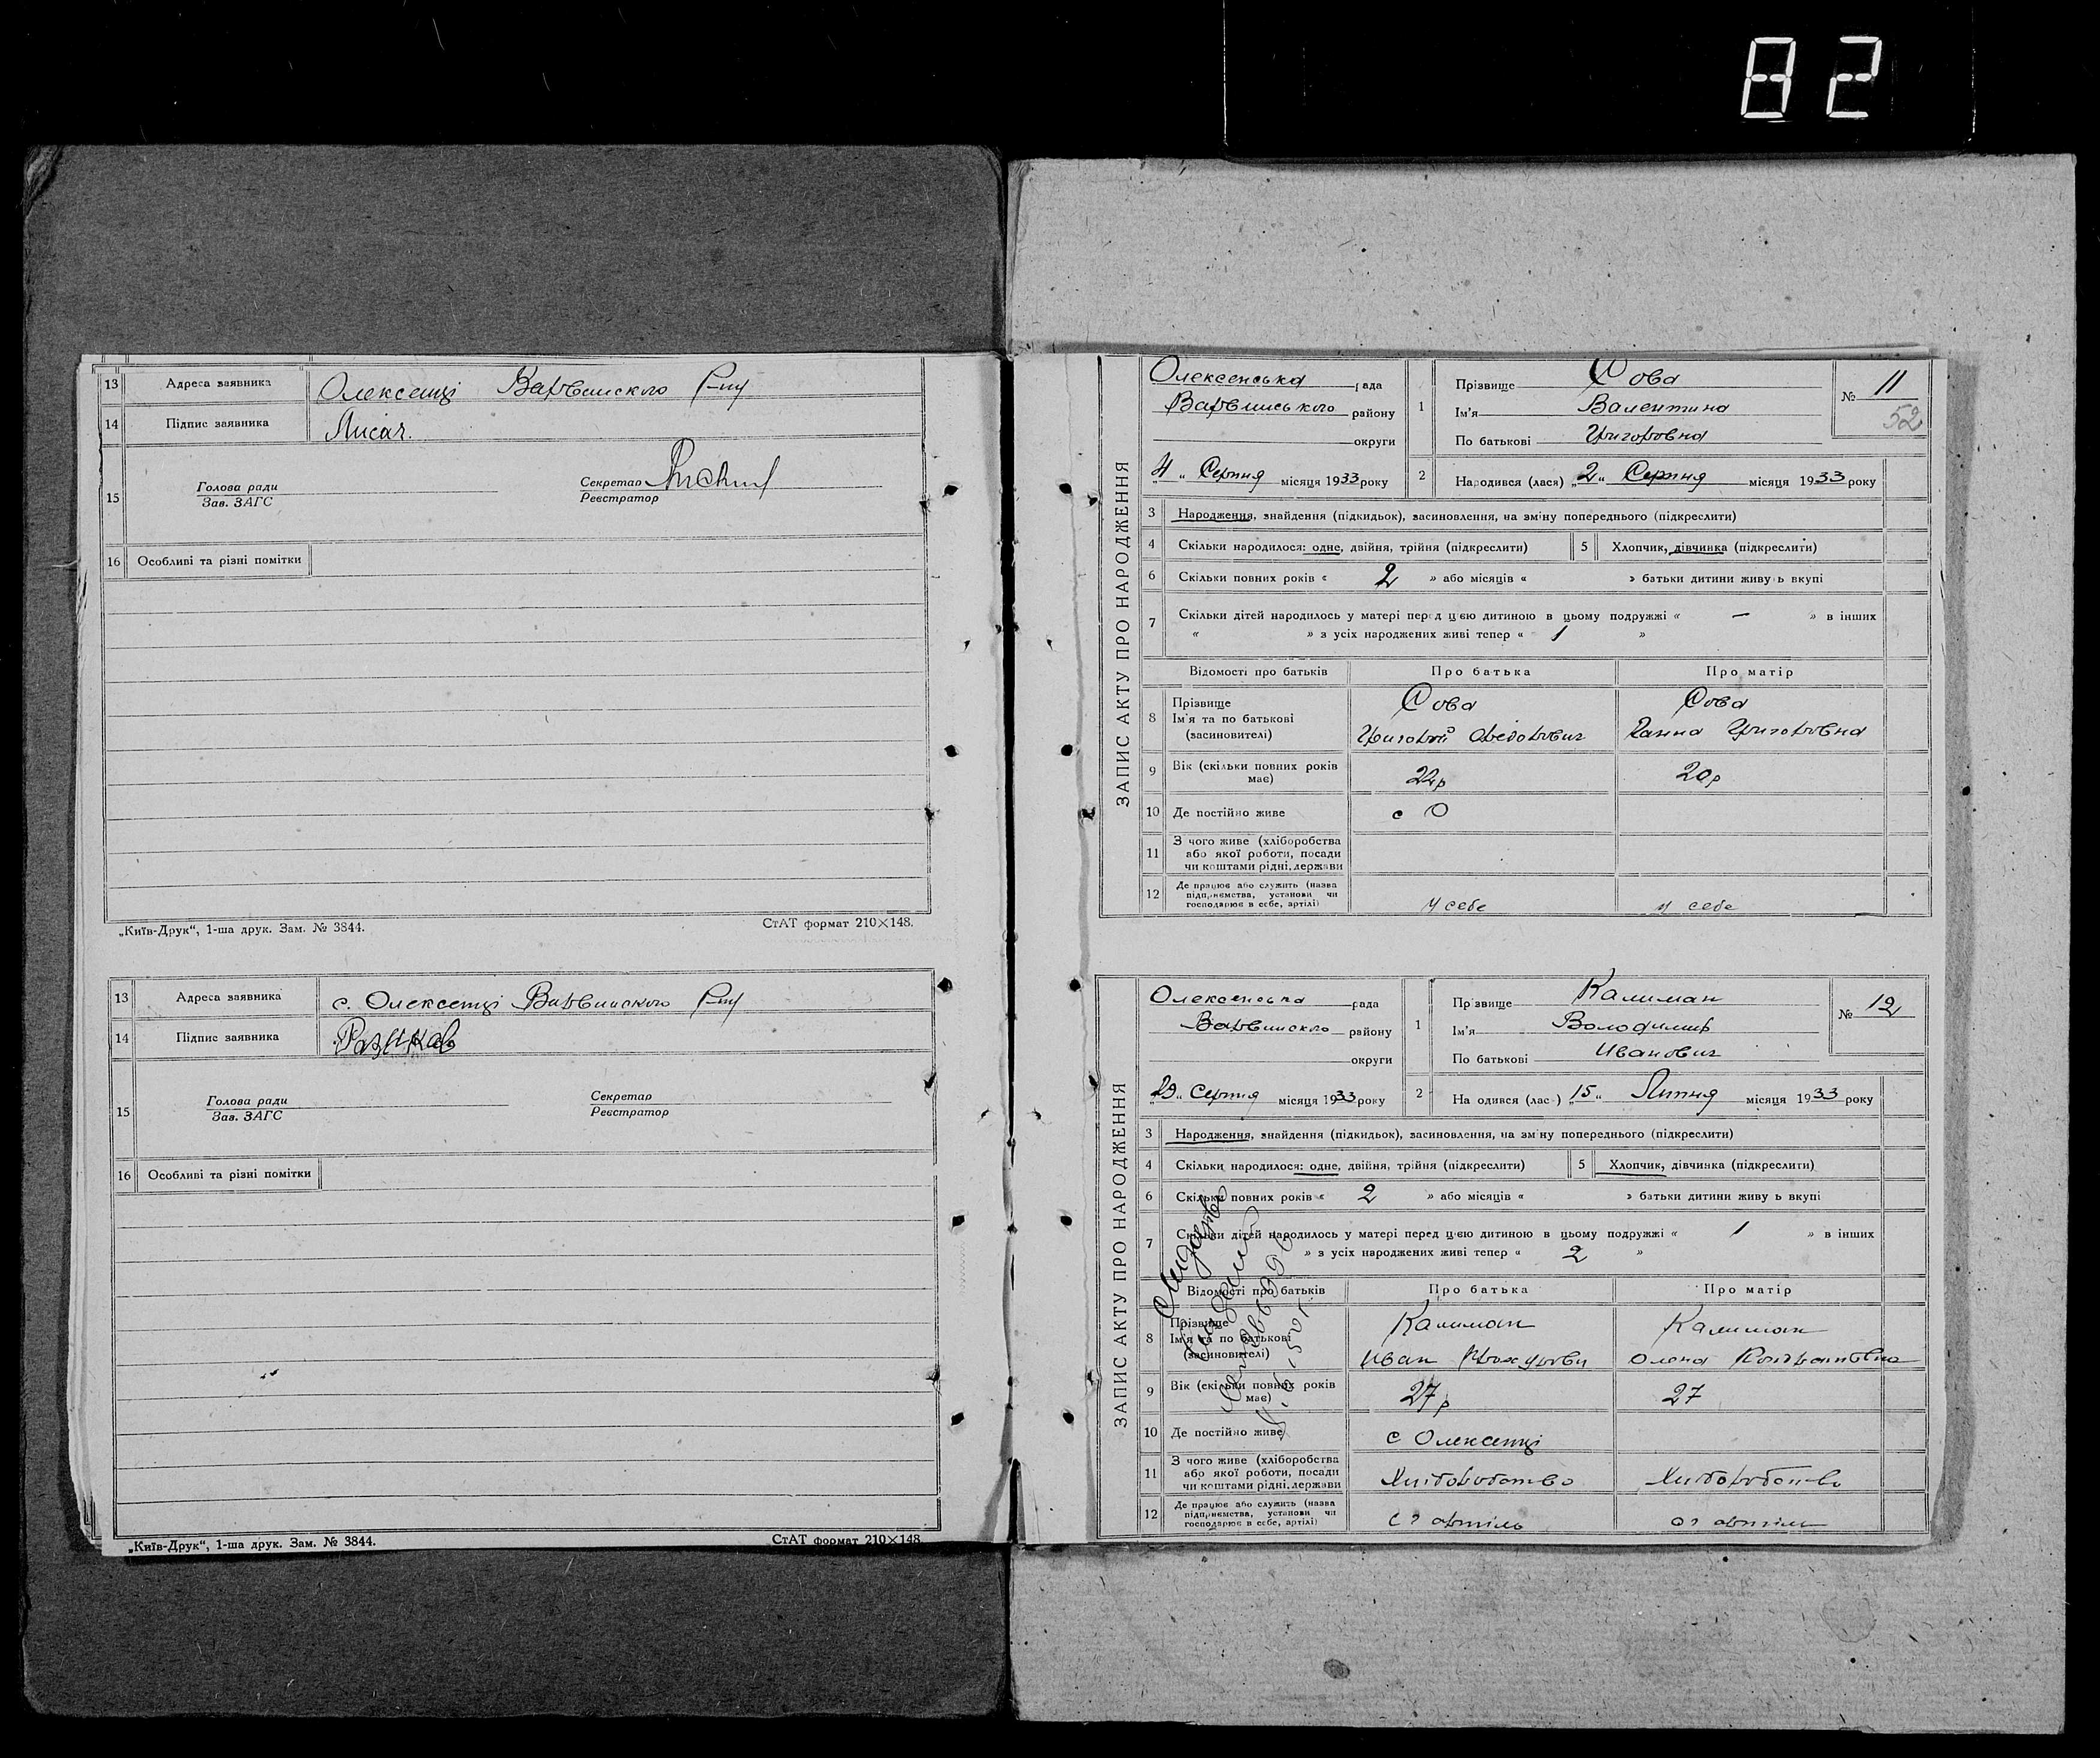 82
13 Адреса заявника Олексенці Варвинского Р-ну
14 Підпис заявника Лисач.
15 Голова ради Секретар
Зав. ЗАГС Реєстратор
16 Особливі та різні помітки
„Київ-Друк“, 1-ша друк. Зам. № 3844. СтАТ формат 210×148.
13 Адреса заявника с. Олексенці Варвинского Р-ну
14 Підпис заявника
15 Голова ради Секретар
Зав. ЗАГС Реєстратор
16 Особливі та різні помітки
„Київ-Друк“, 1-ша друк. Зам. № 3844. СтАТ формат 210×148.
ЗАПИС АКТУ ПРО НАРОДЖЕННЯ
Олексенська рада
Варвинського району
округи
1 Прізвище Сова
Ім'я Валентина
По батькові Григоровна
№ 11
52
4 „ Серпня місяця 1933 року
2 Народився (лася) „2“ Серпня місяця 1933 року
3 Народження, знайдення (підкидьок), засиновлення, на зміну попереднього (підкреслити)
4 Скільки народилося: одне, двійня, трійня (підкреслити) 5 Хлопчик, дівчинка (підкреслити)
6 Скільки повних років « 2 » або місяців « » батьки дитини живу ь вкупі
7 Скільки дітей народилось у матері перед цією дитиною в цьому подружжі « — » в інших
« » з усіх народжених живі тепер « 1 »
Відомості про батьків Про батька Про матір
8 Прізвище Сова Сова
Ім'я та по батькові Григорій Федорович Ганна Григоровна
(засиновителі)
9 Вік (скільки повних років 22р 20р
має)
10 Де постійно живе с О
11 З чого живе (хліборобства
або якої роботи, посади
чи коштами рідні, держави
12 Де працює або служить (назва
підприємства, установи чи
господарює в себе, артілі) у себе у себе
ЗАПИС АКТУ ПРО НАРОДЖЕННЯ
Олексенська рада
Варвинского району
округи
1 Прізвище Калиман
Ім'я Володимир
По батькові Иванович
№ 12
„29“ Серпня місяця 1933 року
2 На одився (лас ) „15“ Липня місяця 1933 року
3 Народження, знайдення (підкидьок), засиновлення, на зміну попереднього (підкреслити)
4 Скільки народилося: одне, двійня, трійня (підкреслити) 5 Хлопчик, дівчинка (підкреслити)
6 Скільки повних років « 2 » або місяців « » батьки дитини живу ь вкупі
7 Скільки дітей народилось у матері перед цією дитиною в цьому подружжі « 1 » в інших
» з усіх народжених живі тепер « 2 »
Відомості про батьків Про батька Про матір
8 Прізвище Калиман Калиман
Ім'я та по батькові Иван Олена Кондратовна
(засиновителі)
9 Вік (скільки повних років 27р 27
має)
10 Де постійно живе с Олексенці
11 З чого живе (хліборобства
або якої роботи, посади Хліборобство Хліборобство
чи коштами рідні, держави
12 Де працює або служить (назва
підприємства, установи чи
господарює в себе, артілі) артіль артіль